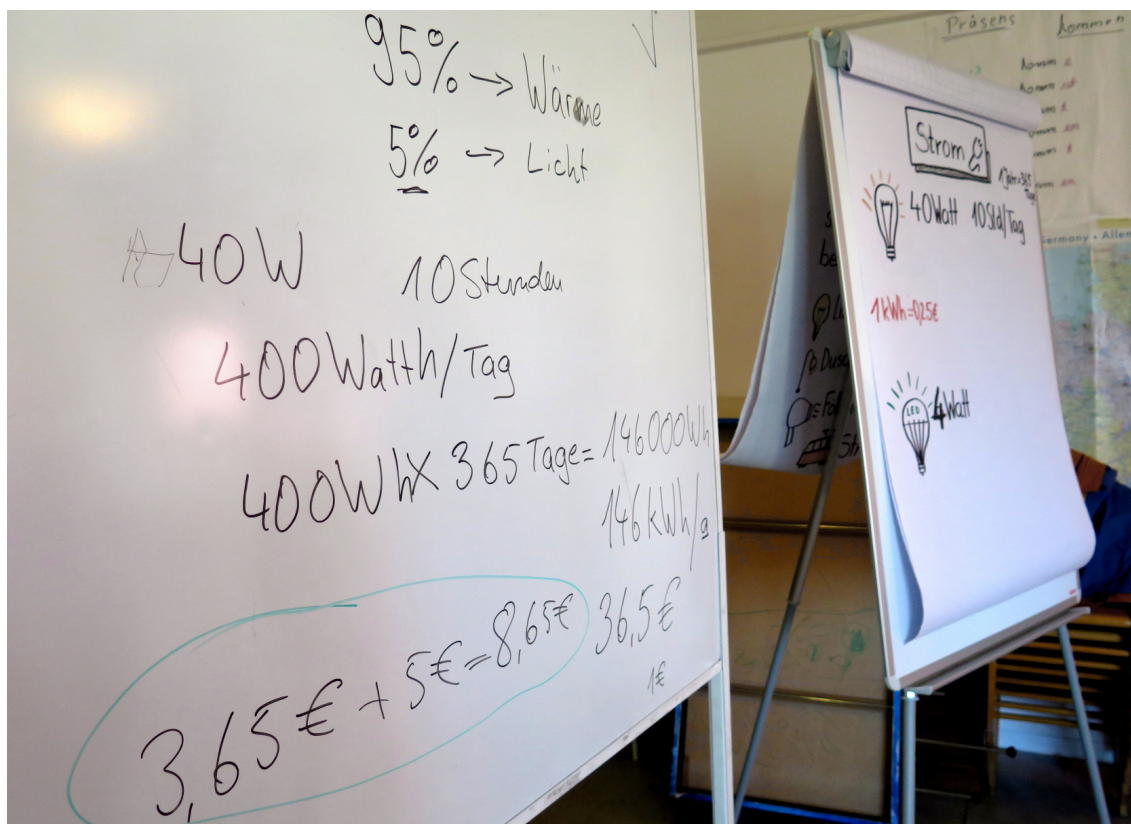 95% → Wärme
5% → Licht
40W 10 Stunden
400Watth/Tag
400WhX 365 Tage = 146000Wh
146kWh/a
36,5€
1€
3,65€ + 5€ = 8,65€
Strom
1 Jahr=365 Tage
40Watt 10Std/Tag
1kWh=0,25€
LED
4Watt
Präsens
kommen
Germany • Allem